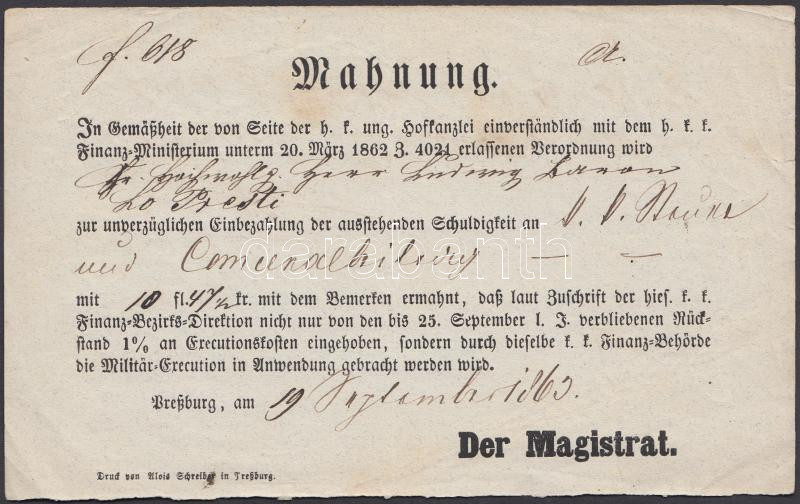 f. 618
A.
Mahnung.
In Gemäßheit der von Seite der h. k. ung. Hofkanzlei einverständlich mit dem h. k. k.
Finanz-Ministerium unterm 20. März 1862 Z. 4021 erlassenen Verordnung wird
Sr. Hochwohlg. Herr Ludwig Baron
Lo Presti
zur unverzüglichen Einbezahlung der ausstehenden Schuldigkeit an
und
mit 10 fl. 47 kr. mit dem Bemerken ermahnt, daß laut Zuschrift der hies. k. k.
Finanz-Bezirks-Direktion nicht nur von den bis 25. September l. J. verbliebenen Rück-
stand 1% an Executionskosten eingehoben, sondern durch dieselbe k. k. Finanz-Behörde
die Militär-Execution in Anwendung gebracht werden wird.
Preßburg, am 19 September 1863.
Der Magistrat.
Druck von Alois Schreiber in Preßburg.
darabanth